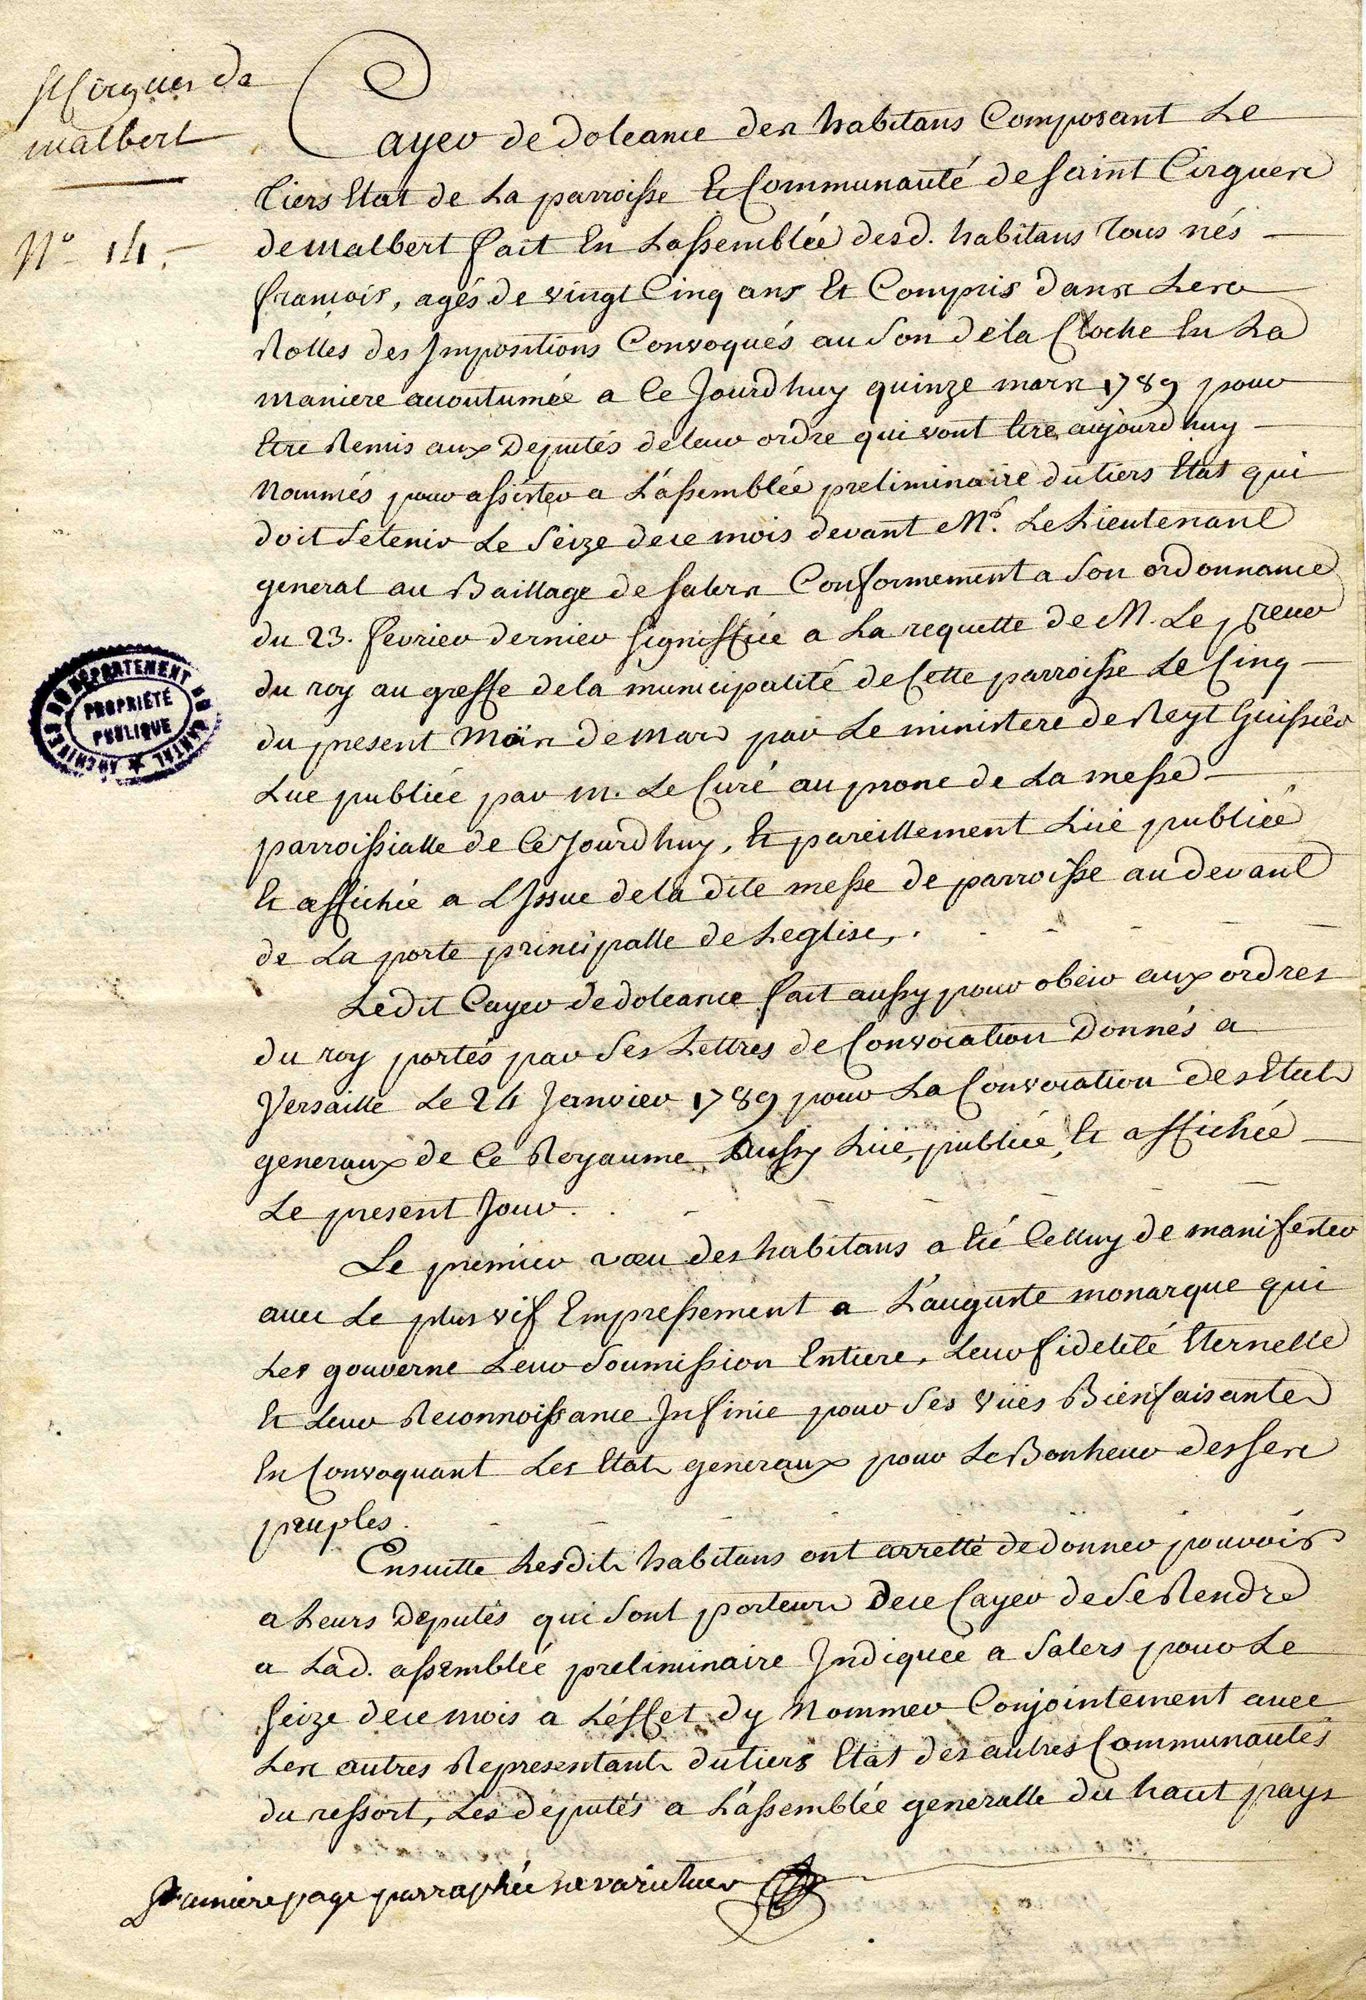 St Cirgues de
malbert
N° 14.
Cayer de doleance des habitans Composant Le
tiers Etat de La parroisse Et Communauté de saint Cirgues
de malbert fait En L'assemblée desd. habitans tous nés
françois, agés de vingt Cinq ans Et Compris dans Les
Rolles des Impositions Convoqués au son de la Cloche En La
maniere acoutumée a Ce Jourdhuy quinze mars 1789 pour
Etre Remis aux Deputés de leur ordre qui vont Etre aujourdhuy
Nommés pour assister a L'assemblée preliminaire du tiers Etat qui
doit se tenir Le seize de ce mois devant Mr. Le Lieutenant
general au Baillage de salers Conformement a son ordonnance
du 23. fevrier dernier signiffiée a La requette de M. Le preur
du roy au greffe de la municipalité de Cette parroisse Le Cinq
du present Mois de mars par Le ministere de Reyt huissier
Lue publiée par m. Le Curé au prone de La messe
parroissialle de Ce Jourdhuy, Et pareillement Lüe publiée
Et affichée a L'Issue de la dite messe de parroisse au devant
de La porte principalle de Leglise,.
Ledit Cayer de doleance fait aussy pour obeir aux ordres
du roy portés par ses Lettres de Convocation Donnés a
Versaille Le 24 Janvier 1789 pour La Convocation des Etats
generaux de Ce Royaume, Aussy Lüe, publiée, Et affichée
Le present Jour.
Le premier voeu des habitans a Eté Celluy de manifester
avec Le plus vif Empressement a L'auguste monarque qui
Les gouverne Leur soumission Entiere, Leur fidelité Eternelle
Et Leur Reconnoissance Infinie pour ses vües Bienfaisantes
En Convoquant Les Etats generaux pour Le Bonheur desses
peuples.
Ensuitte Lesdits habitans ont arretté de donner pouvoir
a Leurs Deputés qui sont porteurs De ce Cayer de se Rendre
a Lad. assemblée preliminaire Indiquée a Salers pour Le
seize de ce mois a L'effet dy Nommer Conjointement avec
Les autres Representants du tiers Etat des autres Communautés
du ressort, Les deputés a L'assemblée generalle du haut pays
Premiere page parraphée ne varietur
ARCHIVES DU DÉPARTEMENT DU CANTAL
PROPRIÉTÉ
PUBLIQUE